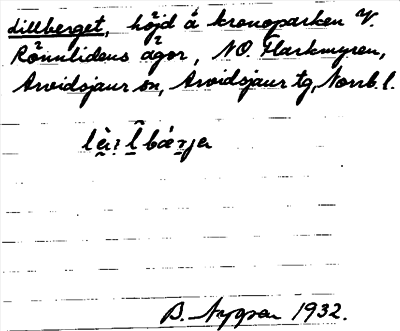 Lillberget, höjd å kronoparken V.
Rönnlidens ägor, NO. Harkmyren,
Arvidsjaur sn, Arvidsjaur tg, Norrb. l.
B. Nygren 1932.